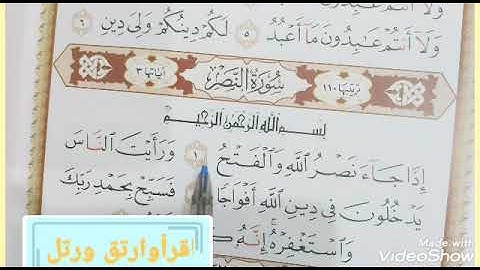 وَلَآ أَنتُمْ عَٰبِدُونَ مَآ أَعْبُدُ ٥ لَكُمْ دِينُكُمْ وَلِىَ دِينِ ٦
ترتيبها ١١٠ سُورَةُ النَّصْرِ آياتها ٣
بِسْمِ ٱللَّهِ ٱلرَّحْمَٰنِ ٱلرَّحِيمِ
إِذَا جَآءَ نَصْرُ ٱللَّهِ وَٱلْفَتْحُ ١ وَرَأَيْتَ ٱلنَّاسَ
يَدْخُلُونَ فِى دِينِ ٱللَّهِ أَفْوَاجًا فَسَبِّحْ بِحَمْدِ رَبِّكَ
وَٱسْتَغْفِرْهُ إِنَّهُۥ
اقرأ وارتق ورتل
Made with
VideoShow